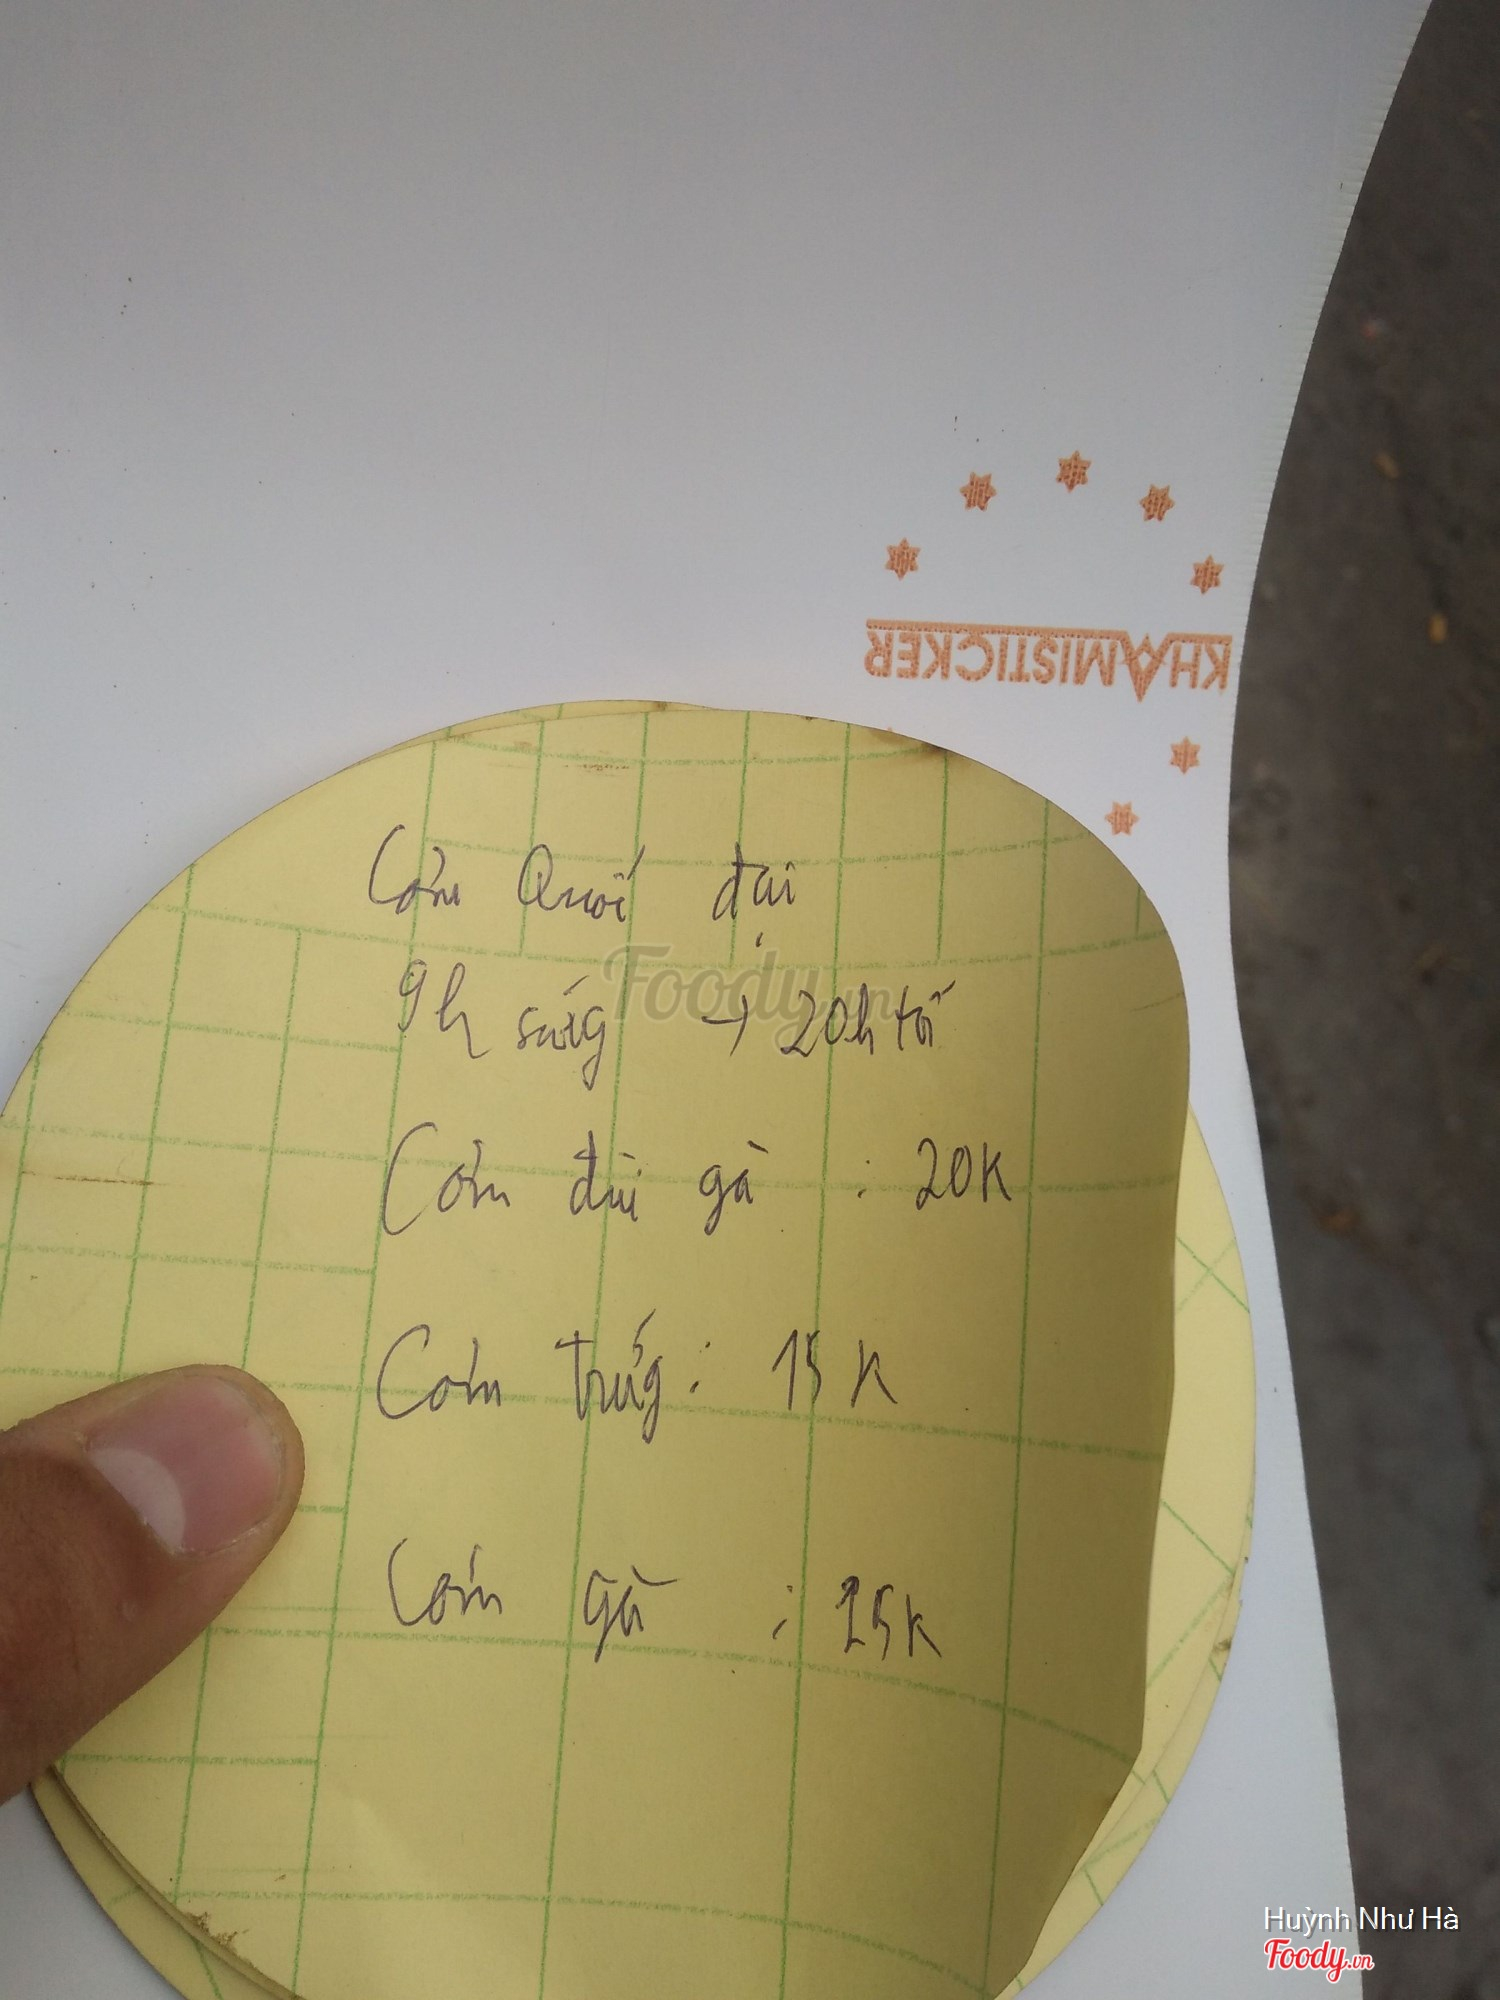 KHAMISTICKER
Cơm Quối đại
9h sáng → 20h tối
Cơm đùi gà : 20K
Cơm trứng : 15K
Cơm gà : 25K
Foody.vn
Huỳnh Như Hà
Foody.vn